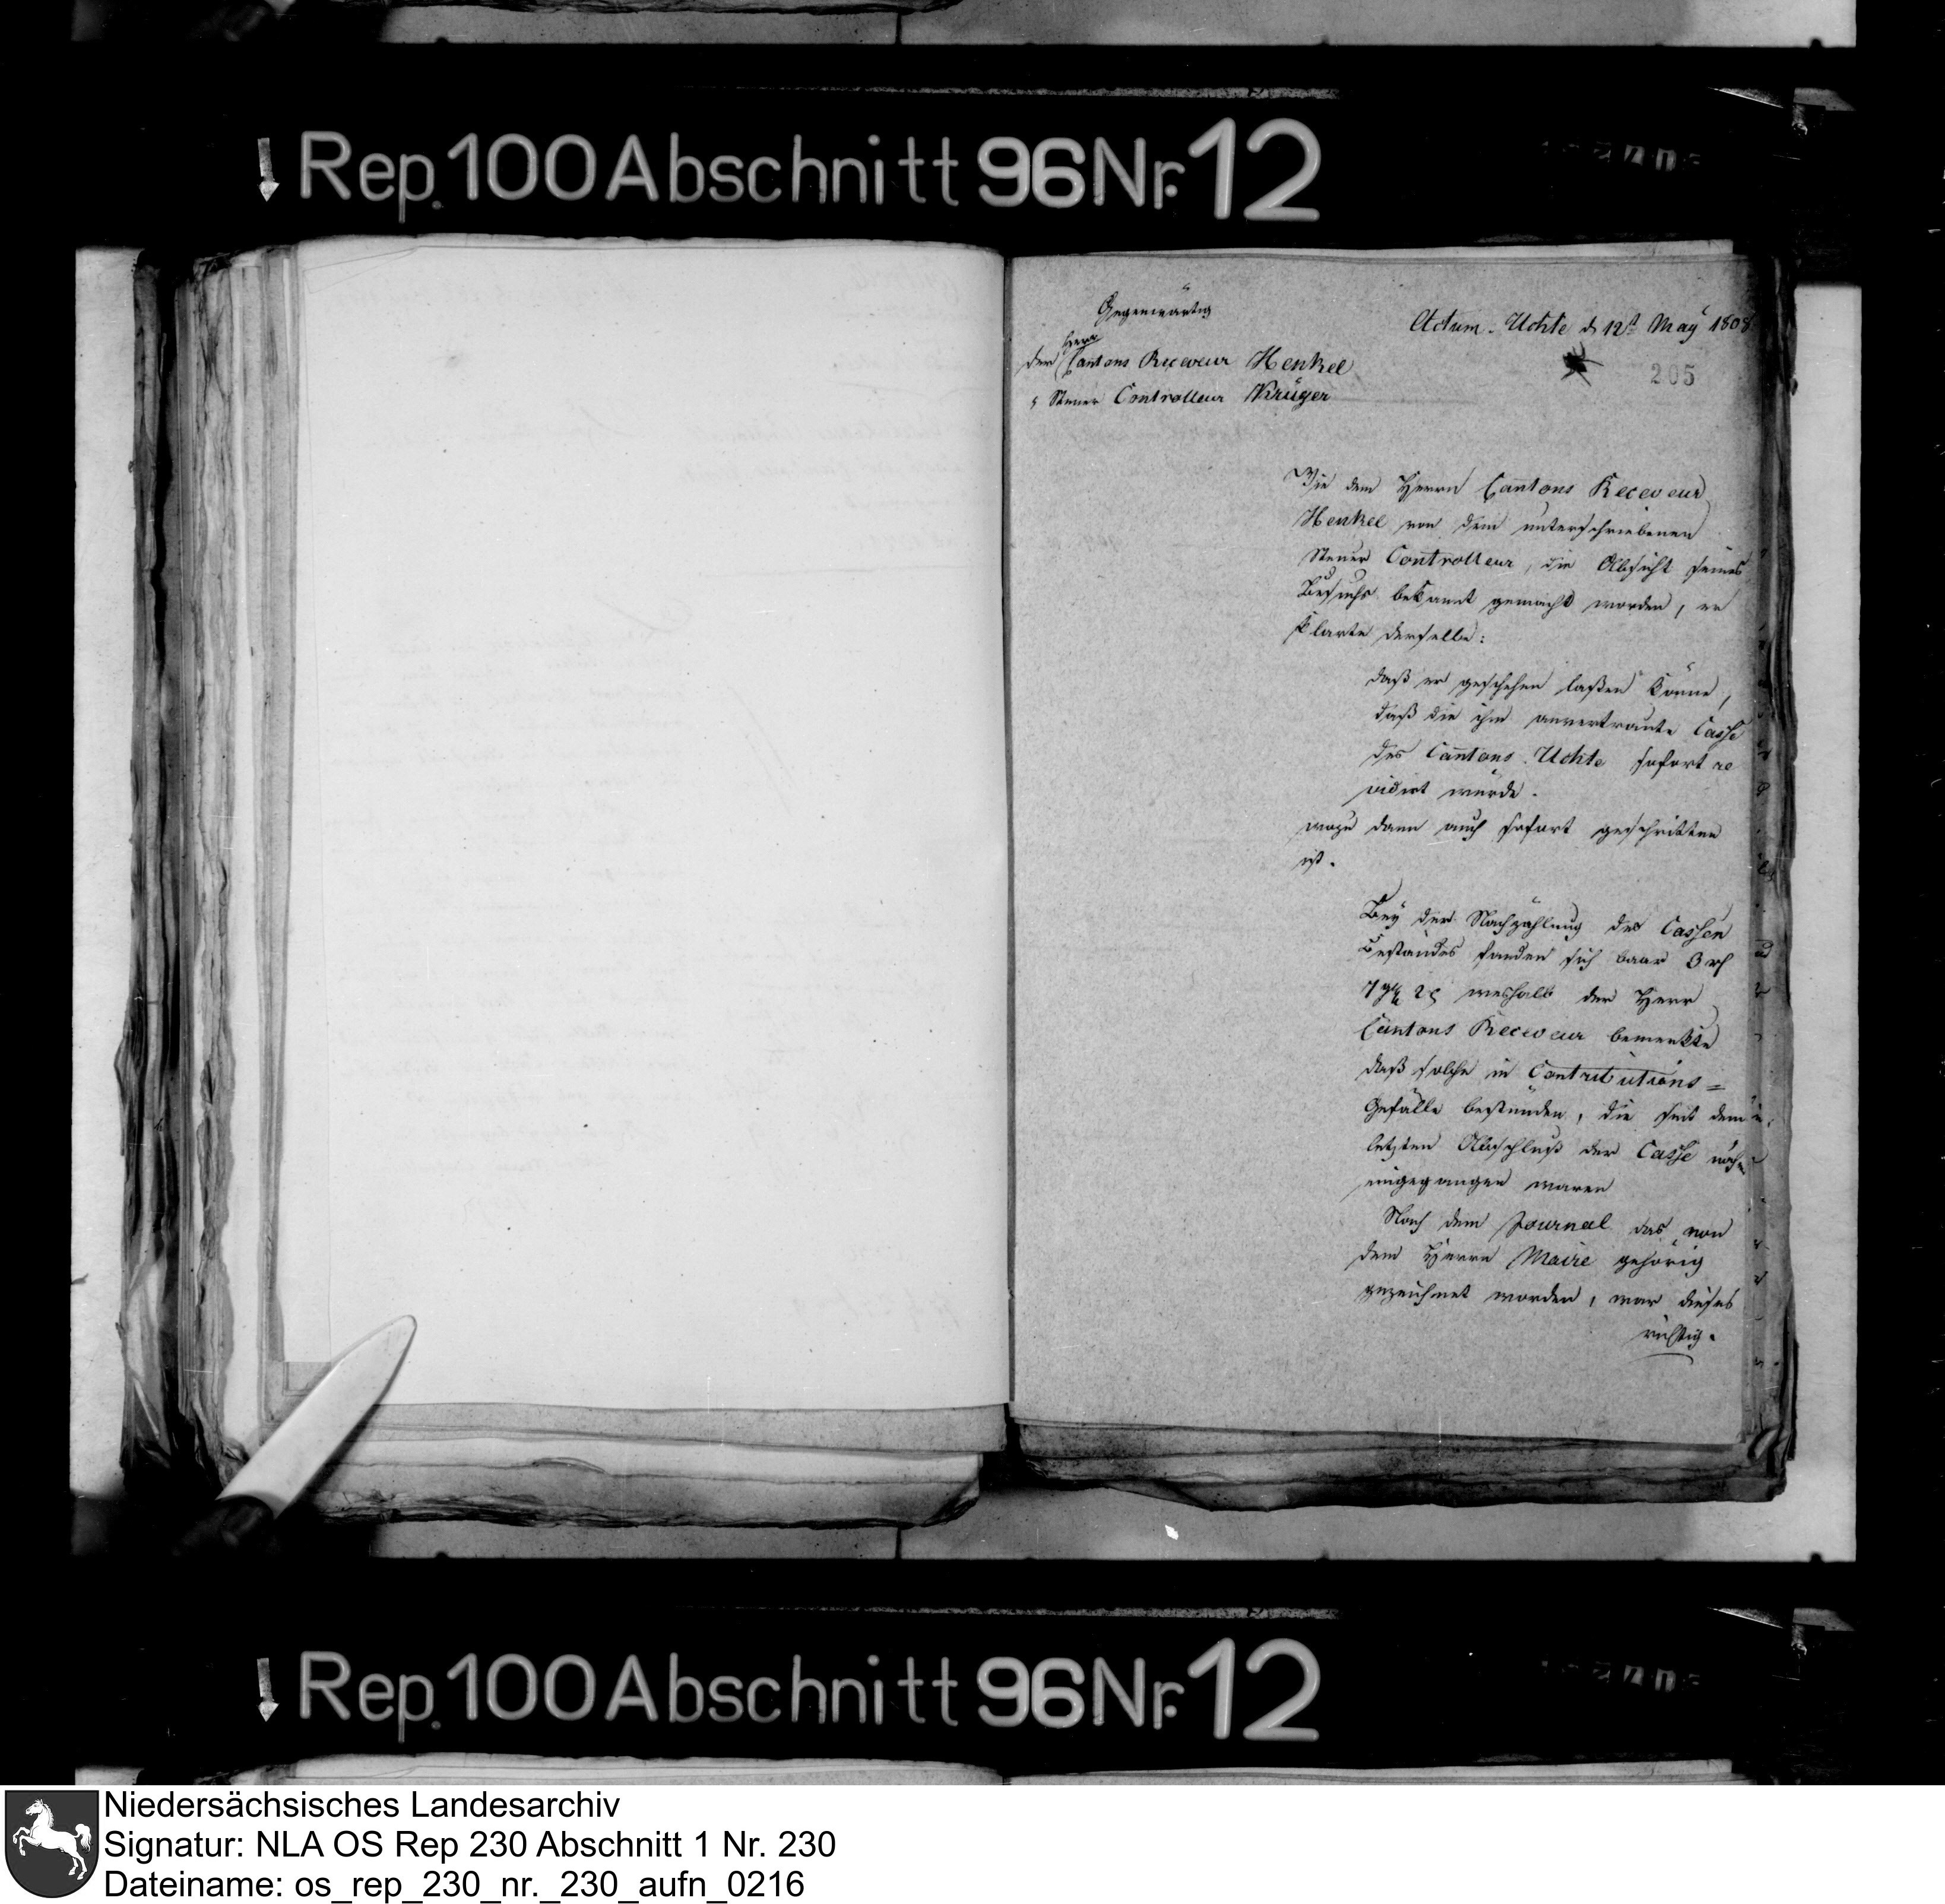 Rep. 100 Abschnitt 96 Nr. 12
Gegenwärtig
Actum. Uchte d 12t May 1808
205
Herr
der Cantons Receveur Henkel
" Steuer Controlleur Krüger
Wie dem Herrn Cantons Receveur
Henkel von dem unterschriebenen
Steuer Controlleur, die Absicht seines
Besuchs bekannt gemacht worden, er
klarte derselbe:
daß er geschehen laßen könne,
daß die ihm anvertraute Casse
des Cantons Uchte sofort re
vidirt würde.
wozu dann auch sofort geschritten
ist.
Bey der Nachzählung des Cassen
Bestandes fanden sich baar 3 rh
7 ggr 2 d weshalb der Herr
Cantons Receveur bemerkte
daß solche in Contributions=
Gefälle bestünden, die seit dem
letzten Abschluß der Casse noch
eingegangen waren
Nach dem Journal das von
dem Herrn Maire gehörig
gezeichnet worden, war dieses
richtig.
Rep. 100 Abschnitt 96 Nr. 12
Niedersächsisches Landesarchiv
Signatur: NLA OS Rep 230 Abschnitt 1 Nr. 230
Dateiname: os_rep_230_nr._230_aufn_0216